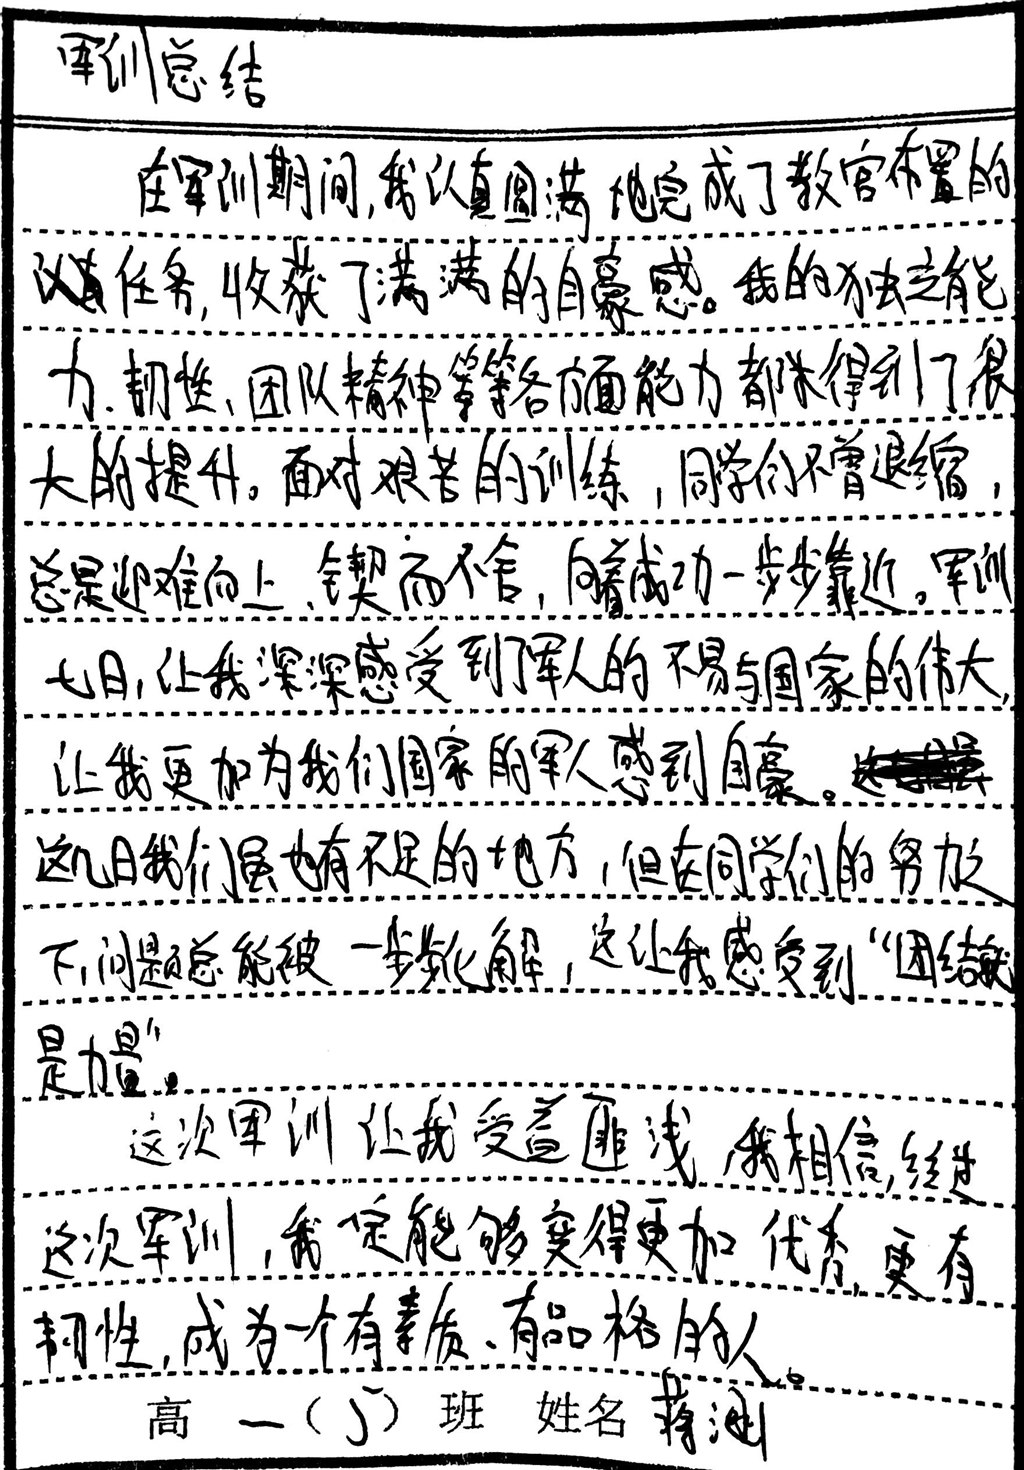 军训总结
在军训期间,我认真圆满地完成了教官布置的
认真任务,收获了满满的自豪感。我的独立能
力、韧性、团队精神等等各方面能力都得到了很
大的提升。面对艰苦的训练,同学们不曾退缩,
总是迎难而上、锲而不舍,向着成功一步步靠近。军训
七日,让我深深感受到了军人的不易与国家的伟大,
让我更加为我们国家的军人感到自豪。
这几日我们虽也有不足的地方,但在同学们的努力之
下,问题总能被一步步化解,这让我感受到“团结就
是力量”。
这次军训让我受益匪浅,我相信,经过
这次军训,我一定能够变得更加优秀,更有
韧性,成为一个有素质、有品格的人。
高一(5)班 姓名 蒋